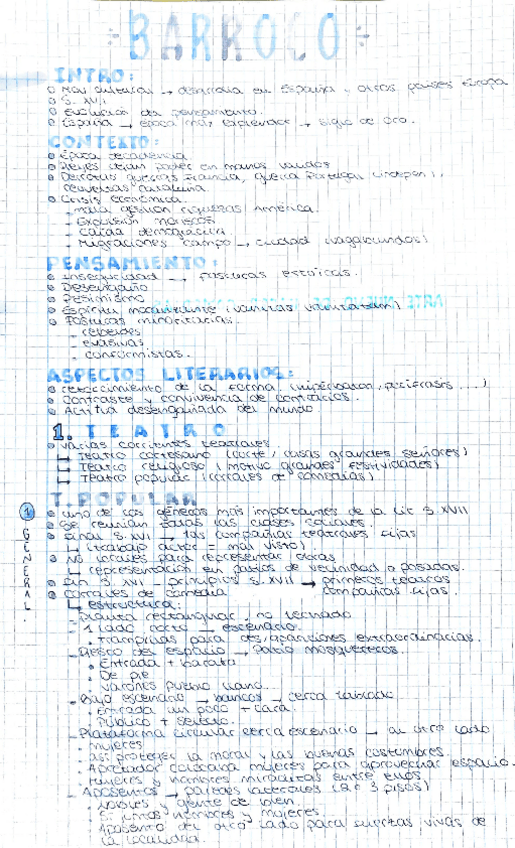 BARROCO
INTRO:
Mov. cultural → desarrolla en España y otros países Europa
S. XVII
Evolución del pensamiento.
España → época más esplendor → siglo de oro.
CONTEXTO:
Época decadencia
Reyes dejan poder en manos validos
Derrotas guerras Francia, guerra Portugal (indepen.),
revueltas Cataluña.
Crisis económica.
- mala gestión riquezas América.
- Expulsión moriscos
- Caída demográfica
- Migraciones campo → ciudad (vagabundos)
PENSAMIENTO:
Inseguridad → posturas estoicas.
Desengaño
Pesimismo
Espíritu moralizante (vanitas vanitatum)
Posturas minoritarias.
- rebeldes
- evasivas
- conformistas.
ASPECTOS LITERARIOS:
retorcimiento de la forma (hipérbaton, perífrasis ...)
Contraste y convivencia de contrarios.
Actitud desengañada del mundo
1. TEATRO
Varias corrientes teatrales.
↳ Teatro cortesano (corte / casas grandes señores)
↳ Teatro religioso (motivo grandes festividades)
↳ Teatro popular (corrales de comedias)
T. POPULAR
1 GENERAL.
uno de los géneros más importantes de la lit. S. XVII
Se reunían todas las clases sociales.
final S. XVI → las compañías teatrales fijas
↳ (trabajo actor = mal visto)
No locales para representar obras
↳ representación en patios de vecindad o posadas.
Fin S. XVI - principios S. XVII → primeros teatros
compañías fijas.
Corrales de comedia
↳ estructura:
- Planta rectangular, no techado
- 1 lado corto → escenario.
· Trampillas para desapariciones extraordinarias.
- Resto del espacio → Patio mosqueteros.
· Entrada + barata
· De pie
· Varones pueblo llano.
- Bajo escenario → bancos → cerca tablado
· Entrada un poco + cara.
· Público + selecto.
- Plataforma circular cerca escenario → al otro lado
· mujeres
· Así proteger la moral y las buenas costumbres.
· Apretador colocaba mujeres para aprovechar espacio.
· Mujeres y hombres miraditas entre ellos
- Aposentos → paredes laterales (2 o 3 pisos)
· Nobles y gente de bien.
· Sí juntos hombres y mujeres.
· Aposento del otro lado para fuerzas vivas de
la localidad.